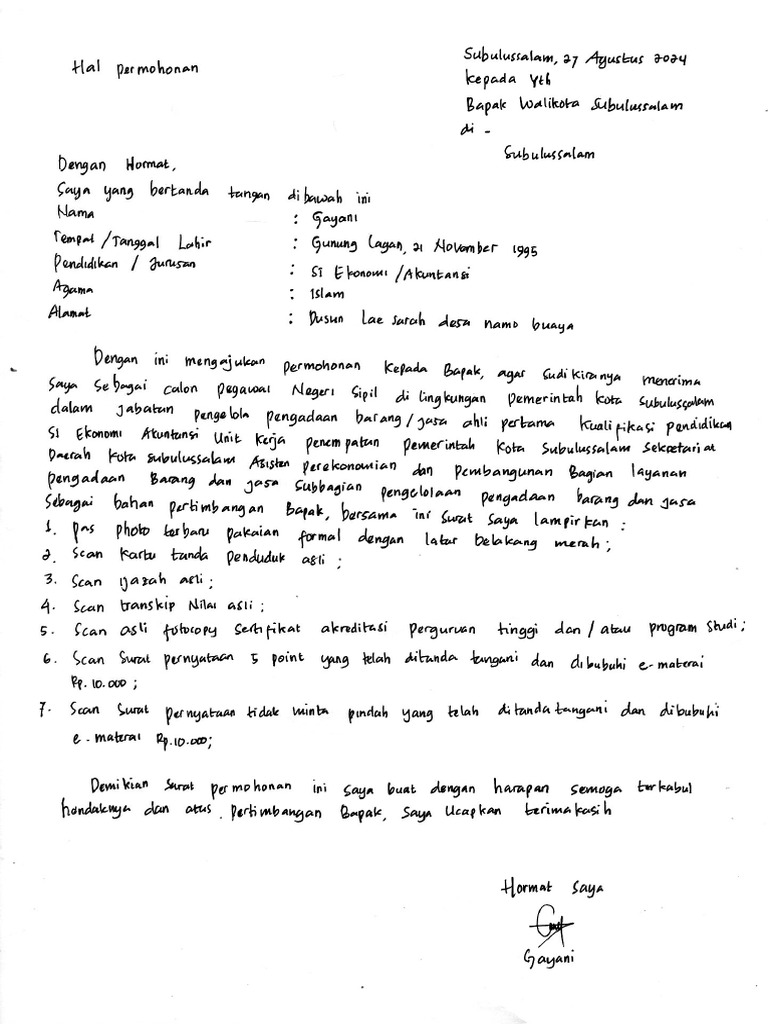 Hal permohonan
Subulussalam, 27 Agustus 2024
Kepada Yth
Bapak Walikota Subulussalam
di -
Subulussalam
Dengan Hormat,
Saya yang bertanda tangan dibawah ini
Nama : Gayani
Tempat/Tanggal Lahir : Gunung Lagan, 21 November 1995
Pendidikan / Jurusan : S1 Ekonomi /Akuntansi
Agama : Islam
Alamat : Dusun Lae sarah desa namo buaya
Dengan ini mengajukan permohonan kepada Bapak, agar sudikiranya menerima
Saya Sebagai calon pegawai Negeri Sipil di lingkungan Pemerintah Kota Subulussalam
dalam jabatan pengelola pengadaan barang/jasa ahli pertama Kualifikasi pendidikan
S1 Ekonomi Akuntansi Unit Kerja penempatan pemerintah Kota Subulussalam Sekretariat
Daerah Kota Subulussalam Asisten perekonomian dan Pembangunan Bagian layanan
pengadaan Barang dan jasa Subbagian pengelolaan pengadaan barang dan jasa
Sebagai bahan pertimbangan Bapak, bersama ini Surat Saya lampirkan :
1. pas photo terbaru pakaian formal dengan latar belakang merah;
2. Scan Kartu tanda penduduk asli ;
3. Scan ijazah asli ;
4. Scan transkip Nilai asli ;
5. Scan asli fotocopy Sertifikat akreditasi perguruan tinggi dan / atau program Studi ;
6. Scan Surat pernyataan 5 point yang telah ditanda tangani dan dibubuhi e-materai
Rp. 10.000 ;
7. Scan Surat pernyataan tidak minta pindah yang telah ditandatangani dan dibubuhi
e-materai Rp.10.000;
Demikian Surat permohonan ini Saya buat dengan harapan semoga terkabul
hendaknya dan atas pertimbangan Bapak, Saya Ucapkan terimakasih
Hormat Saya
Gayani